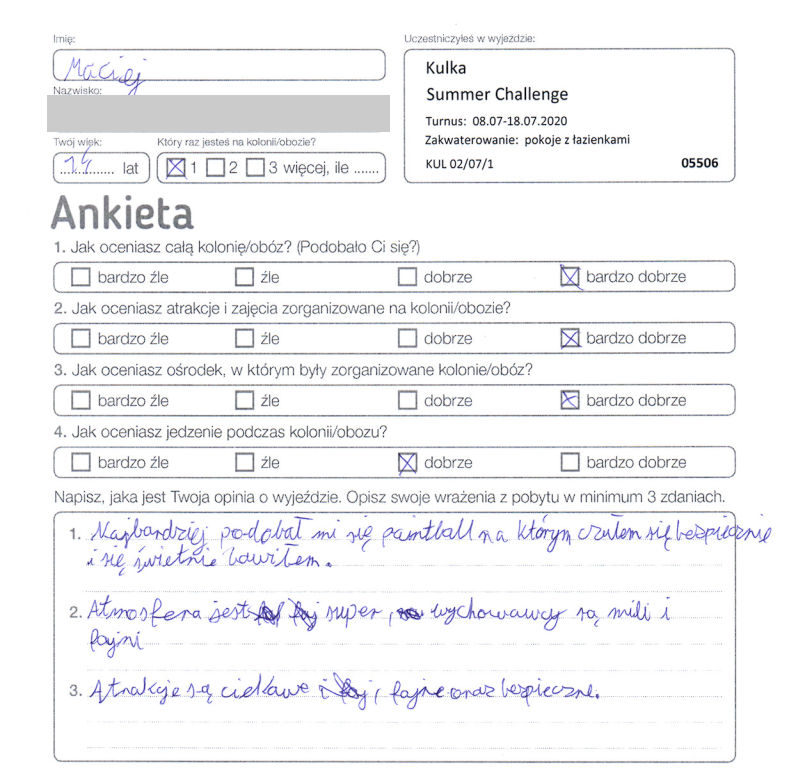 Imię:
Maciej
Nazwisko:
Twój wiek:
14 lat
Który raz jesteś na kolonii/obozie?
1 2 3 więcej, ile .......
Uczestniczyłeś w wyjeździe:
Kulka
Summer Challenge
Turnus: 08.07-18.07.2020
Zakwaterowanie: pokoje z łazienkami
KUL 02/07/1 05506
Ankieta
1. Jak oceniasz całą kolonię/obóz? (Podobało Ci się?)
bardzo źle źle dobrze bardzo dobrze
2. Jak oceniasz atrakcje i zajęcia zorganizowane na kolonii/obozie?
bardzo źle źle dobrze bardzo dobrze
3. Jak oceniasz ośrodek, w którym były zorganizowane kolonie/obóz?
bardzo źle źle dobrze bardzo dobrze
4. Jak oceniasz jedzenie podczas kolonii/obozu?
bardzo źle źle dobrze bardzo dobrze
Napisz, jaka jest Twoja opinia o wyjeździe. Opisz swoje wrażenia z pobytu w minimum 3 zdaniach.
1. Najbardziej podobał mi się paintball na którym czułem się bezpiecznie
i się świetnie bawiłem.
2. Atmosfera jest super, wychowawcy są mili i
fajni
3. Atrakcje są ciekawe, fajne oraz bezpieczne.